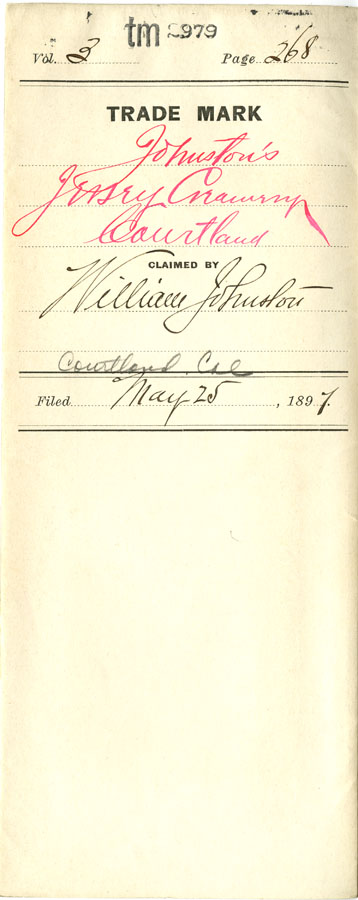 tm 2979
Vol. 3 Page 268
TRADE MARK
Johnston's
Jersey Creamery
Courtland
CLAIMED BY
William Johnston
Courtland Cal
Filed May 25, 1897.